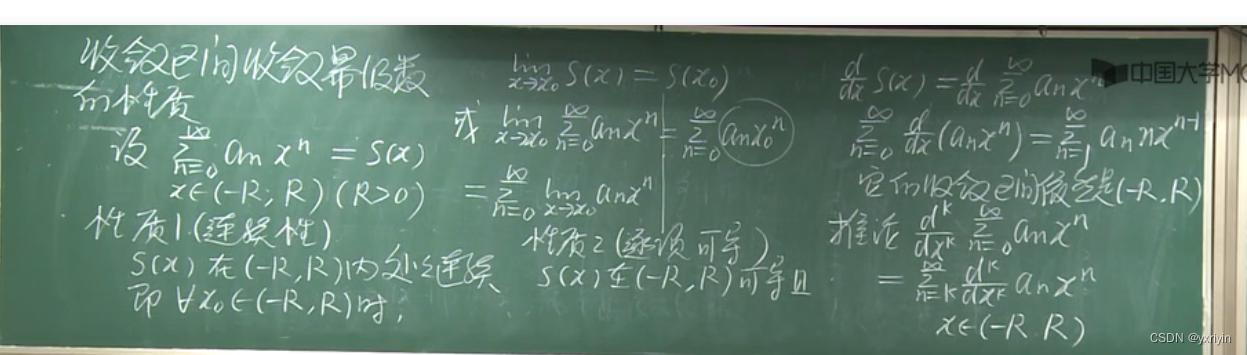 收敛区间收敛幂级数
的性质
设 $\sum_{n=0}^{\infty} a_n x^n = S(x)$
$x \in (-R, R)$ $(R>0)$
性质1.(连续性)
$S(x)$ 在 $(-R, R)$ 内处处连续
即 $\forall x_0 \in (-R, R)$ 时,
$\lim_{x \to x_0} S(x) = S(x_0)$
或 $\lim_{x \to x_0} \sum_{n=0}^{\infty} a_n x^n = \sum_{n=0}^{\infty} a_n x_0^n$
$= \sum_{n=0}^{\infty} \lim_{x \to x_0} a_n x^n$
性质2 (逐项可导)
$S(x)$ 在 $(-R, R)$ 可导且
$\frac{d}{dx} S(x) = \frac{d}{dx} \sum_{n=0}^{\infty} a_n x^n$
$\sum_{n=0}^{\infty} \frac{d}{dx} (a_n x^n) = \sum_{n=1}^{\infty} a_n n x^{n-1}$
它的收敛区间仍是 $(-R, R)$
推论 $\frac{d^k}{dx^k} \sum_{n=0}^{\infty} a_n x^n$
$= \sum_{n=k}^{\infty} \frac{d^k}{dx^k} a_n x^n$
$x \in (-R, R)$
中国大学MO
CSDN @yxriyin